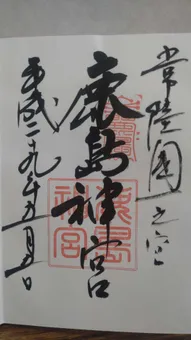 常陸國一之宮
鹿島神宮
鹿島
神宮
平成二九年五月五日